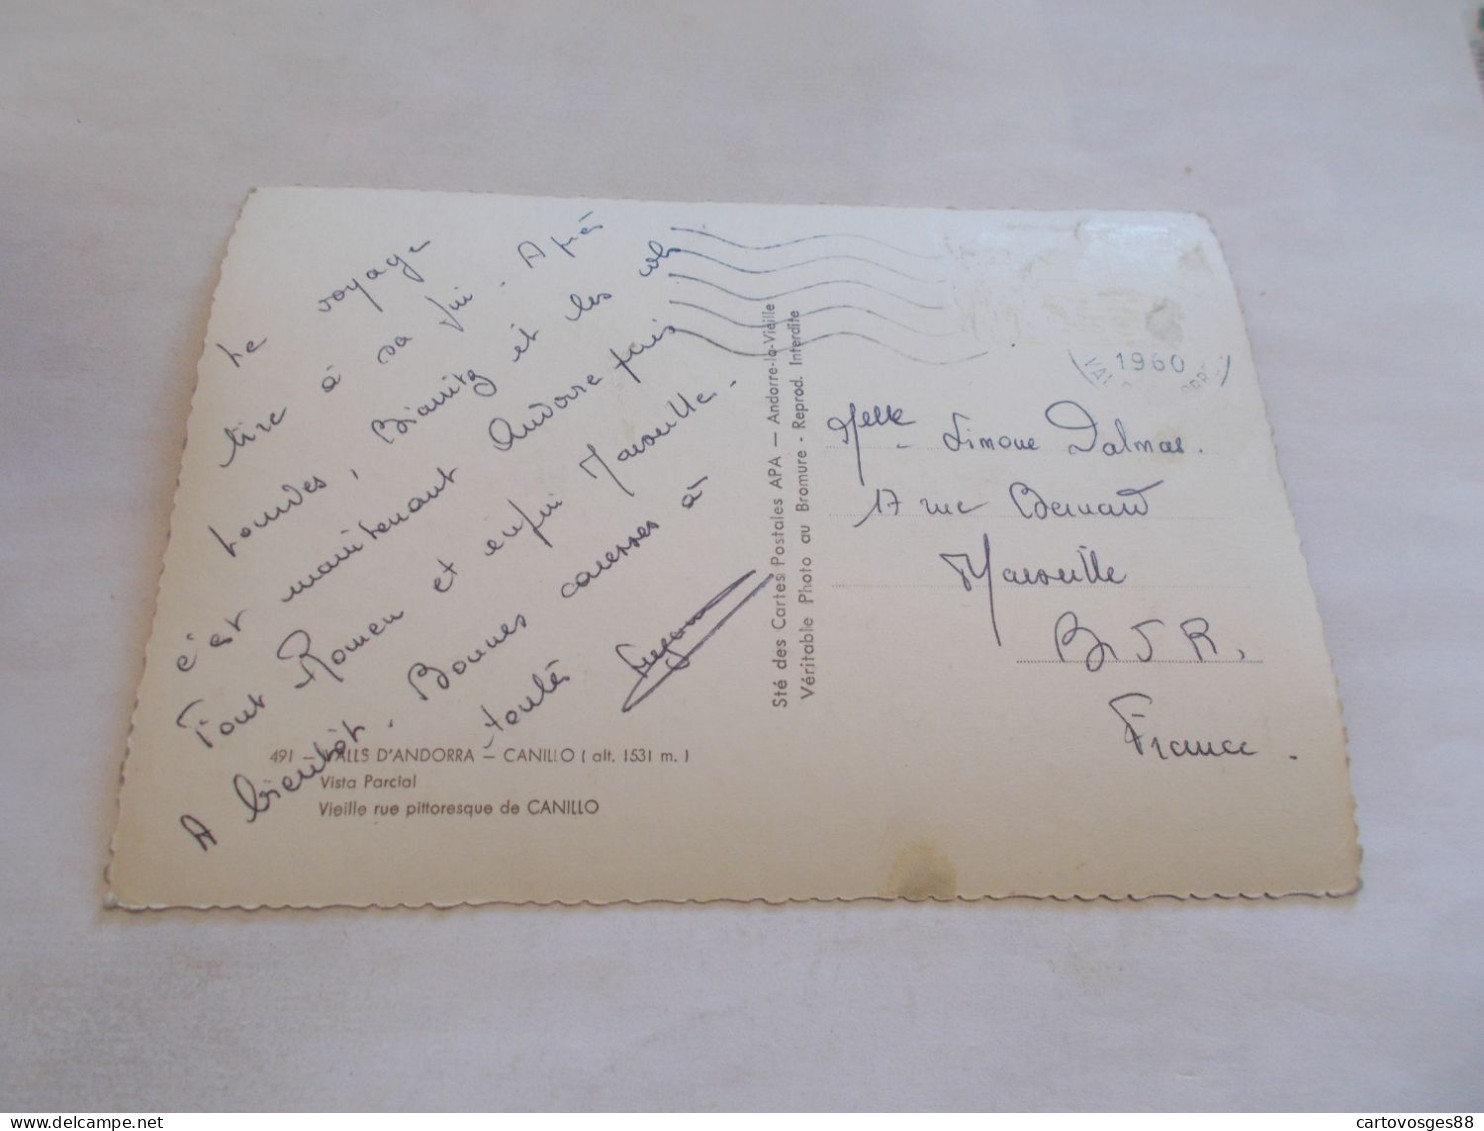 Le voyage
tire à sa fin. Après
Lourdes, Biarritz et les cols
c'est maintenant Andorre puis
Font Romeu et enfin Marseille.
A bientôt. Bonnes caresses à
toutes
491 - VALLS D'ANDORRA - CANILLO (alt. 1531 m.)
Vista Parcial
Vieille rue pittoresque de CANILLO
Sté des Cartes Postales APA - Andorre-la-Vieille
Véritable Photo au Bromure - Reprod. Interdite
1960
Melle Simone Dalmas.
17 rue Bernard
Marseille
B d R.
France.
cartovosges88